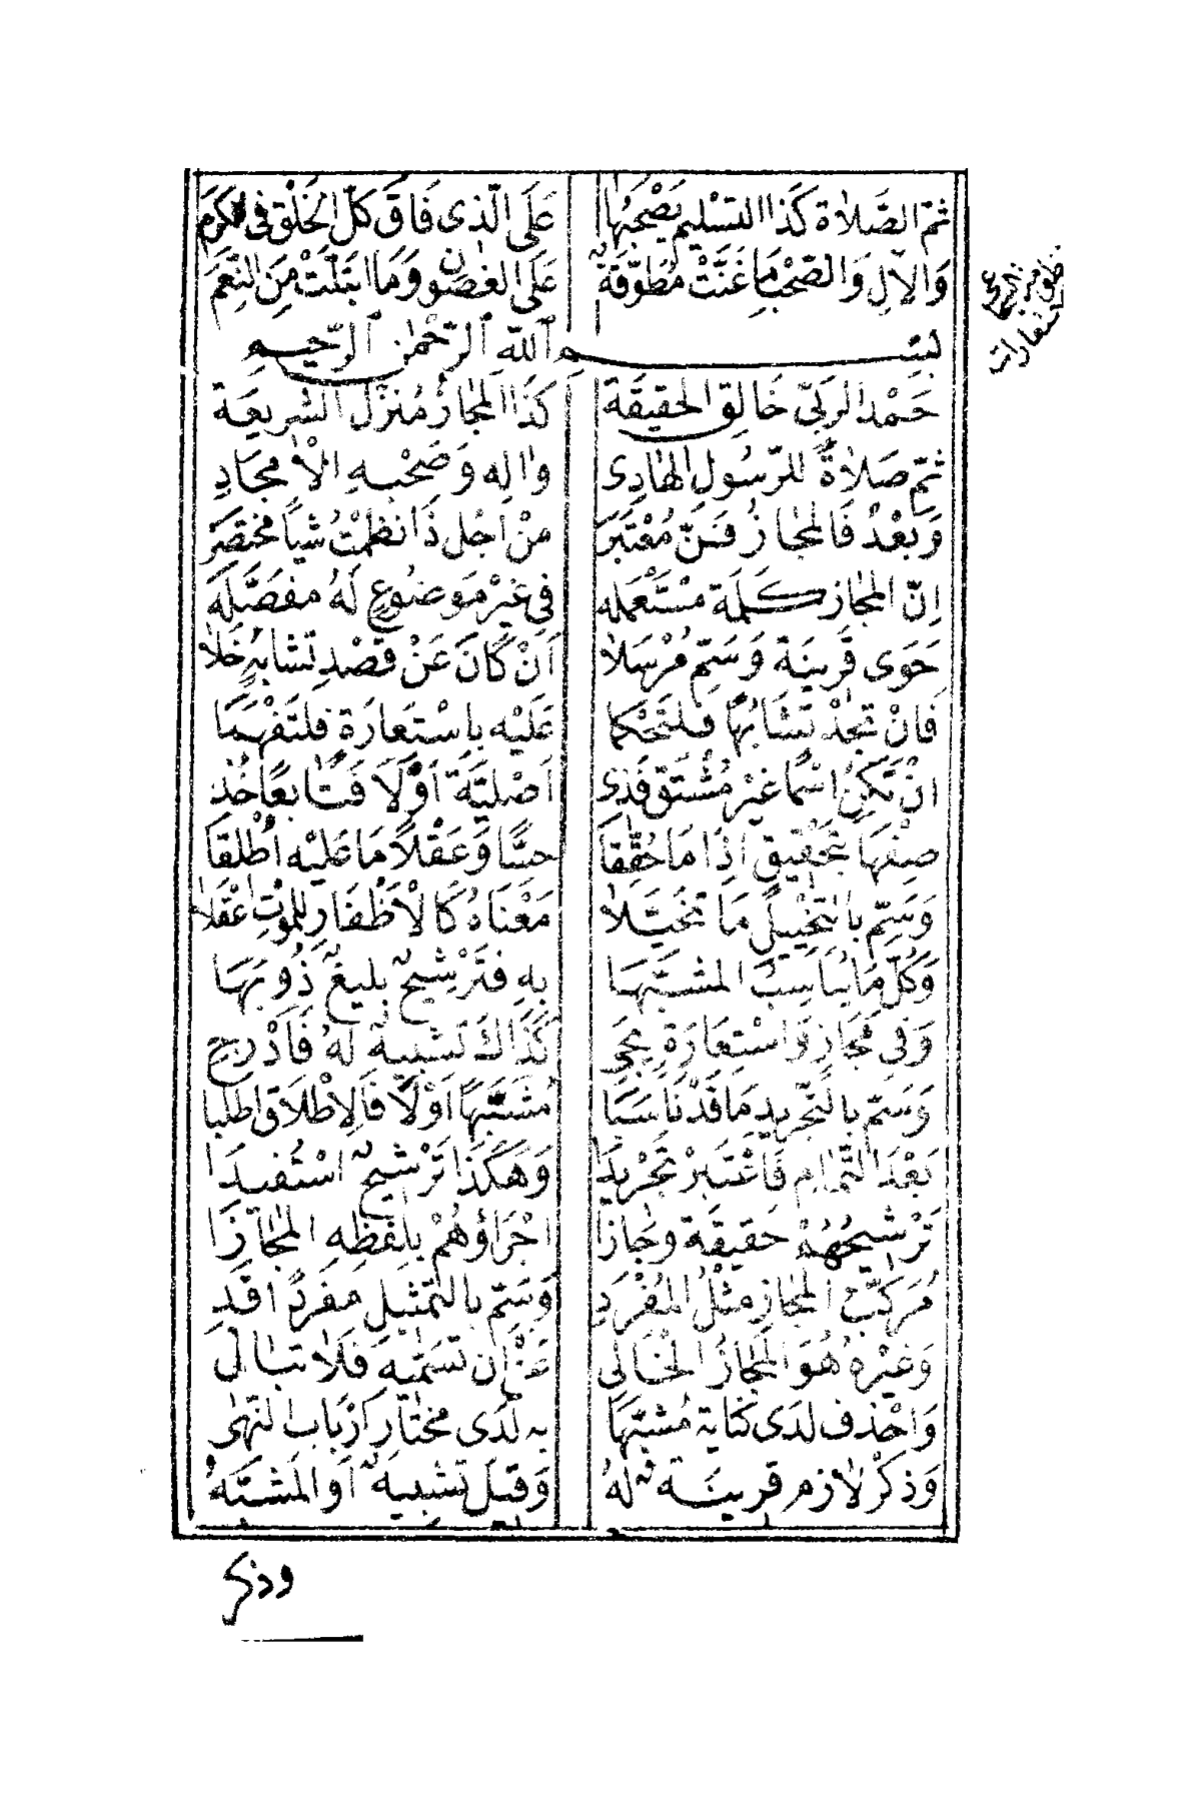 ثمّ الصَّلَاة كَذَا التسْلِيم يَصْحَبُهَا عَلَى الّذِى فَاقَ كلّ الخَلْق فى الكَرَم
وَالآلِ وَالصّحْبِ مَا غَنَّتْ مُطَوّقَةٌ عَلَى الغصُون وَمَا ابْتَلّتْ مِنَ النِّعَم
بسْم اللّه الرّحْمٰن الرّحِيم
حَمْدا لرَبّى خَالِق الحَقِيقَة كَذَا المجَاز مُنْزل الشرِيعَة
ثمّ صَلَاةً للرّسُولِ الهَادِى وَاٰلِه وَصَحْبِهِ الْاَمجَادِ
وَبَعْدُ فَالمجَازُ فَنّ مُعْتَبَرَ مِنْ اَجْل ذَا نَظمْتُ شَياً مختَصَرْ
اِنّ المجَاز كَلمَة مسْتَعْمَله فِى غيْر مَوضُوعٍ لَهُ مفَصَّلَه
حَوَى قَرِينَة وَسَمّ مُرْسَلَا اَنْ كَانَ عَنْ قصْدِ تشَابُهٍ خلَا
فَانْ تجدْ تشَابُهًا فلتَحْكما عَلَيْه بِاسْتِعَارَةٍ فلتَفْهَمَا
انْ تَكنِ اسْمًا غيْر مُشْتَق فَذِى اَصْلِيّة اَوْلَا فَتَابعًا خُذِ
صِفْهَا بتَحْقِيقٍ اذَا مَا حُقّقَا حسًّا وَعَقْلًا مَا عَلَيْه اُطْلقَا
وَسَمّ بالتخْييلِ مَا تخَيّلا مَعْنَاهُ كَالْاَظْفَارِ للمَوْتِ اعْقَلا
وَكُلّ مَا يُنَاسِبُ المشَبّهَا بِهِ فتَرْشيحٌ بليغٌ ذُو بَهَا
وَفى مجَازٍ وَاسْتِعَارَةٍ يجى كَذَاكَ تشبِيهٌ لَهُ فَادْرج
وَسَمّ بالتّجْرِيدِ مَا قَدْ نَاسَبَا مُشَبّهًا اَوْلَا فَالِاطْلَاق اطْلبا
بَعْدَ التّمَامِ فَاعْتَبِرْ تجْرِيدَا وَهَكَذَا تَرْشيحٌ اسْتُفِيدَا
تَرْشيحُهُمْ حَقِيقَة وجَازَا اجْرَاؤهُمْ بلَفْظِهِ المجَازَا
مُرَكّبُ المجَازِ مثْلُ المُفْرَدِ وَسَمّ بالتمْثيل مفْرَدً اقْدِ
وَغيْرهُ هُوَ المجَازُ الخَالِى عَنْ ان تسَمّيهِ فَلَا تبَالى
وَاحْذف لدَى كنَاية مُشَبّهَا به لَدَى مختَارِ اَرْبَابِ النّهَى
وَذِكْرُ لازم قرِينَة لَهُ وَقيلَ تشبِيهٌ اَو المشَبّهُ
وذكر